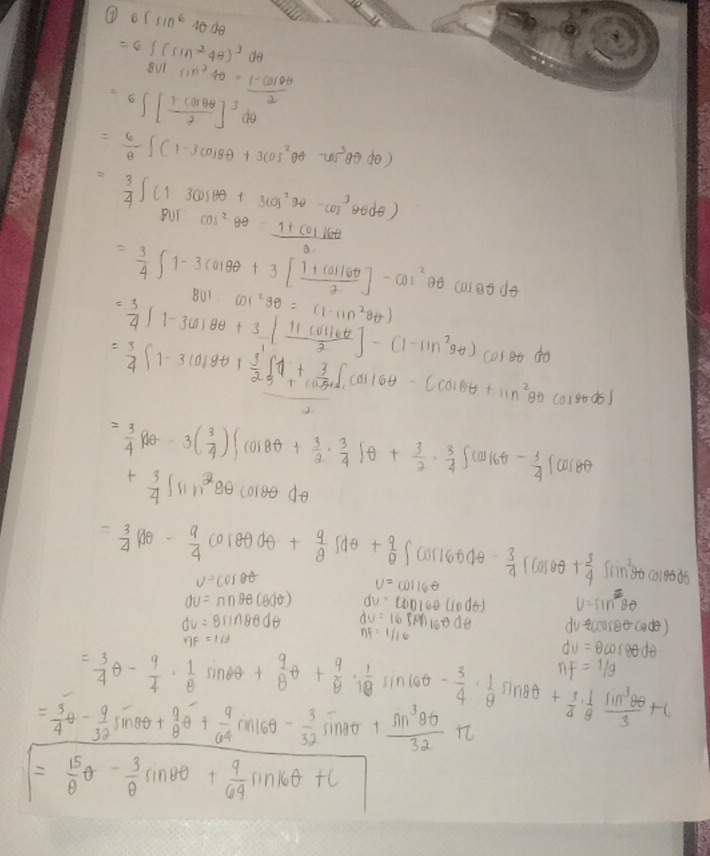 ① 6 ∫ sin⁶ 4θ dθ
= 6 ∫ (sin² 4θ)³ dθ
BUT sin² 4θ = 1-cos8θ/2
= 6 ∫ [1-cos8θ/2]³ dθ
= 6/8 ∫ (1-3cos8θ + 3cos²8θ - cos³8θ dθ)
= 3/4 ∫ (1 3cos8θ + 3cos²8θ - cos³8θdθ)
BUT cos² 8θ = 1+cos16θ/2
= 3/4 ∫ 1-3cos8θ + 3 [1+cos16θ/2] - cos²8θ cos8θ dθ
BUT cos²8θ = (1-sin²8θ)
= 3/4 ∫ 1-3cos8θ + 3 [1+cos16θ/2] - (1-sin²8θ) cos8θ dθ
= 3/4 ∫ 1-3cos8θ + 3/2 ∫1 + 3/2 ∫ cos16θ - (cos8θ + sin²8θ cos8θdθ)
= 3/4 ∫dθ - 3(3/4) ∫cos8θ + 3/2 · 3/4 ∫θ + 3/2 · 3/4 ∫cos16θ - 3/4 ∫cos8θ
+ 3/4 ∫sin²8θ cos8θ dθ
= 3/4 ∫dθ - 9/4 cos8θ dθ + 9/8 ∫dθ + 9/8 ∫cos16θdθ - 3/4 ∫cos8θ + 3/4 ∫sin²8θ cos8θdθ
u=cos8θ u=cos16θ u=sin 8θ
du=8sin8θdθ du=16 sin16θdθ du=8cos8θdθ
nf=1/8 nf=1/16 nf=1/8
= 3/4 θ - 9/4 · 1/8 sin8θ + 9/8 θ + 9/8 · 1/16 sin16θ - 3/4 · 1/8 sin8θ + 3/4 · 1/8 sin³8θ/3 + C
= 3/4 θ - 9/32 sin8θ + 9/8 θ + 9/64 sin16θ - 3/32 sin8θ + sin³8θ/32 +C
= 15/8 θ - 3/8 sin8θ + 9/64 sin16θ + C